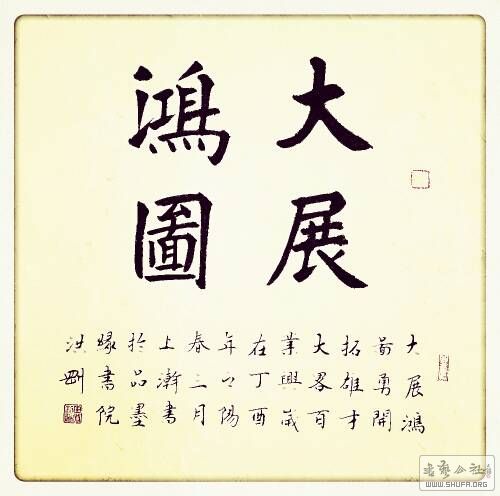 大展
鴻圖
大展鴻
啚勇開
拓雄才
大畧百
業興歲
在丁酉
年之陽
春三月
上澣書
於品墨
緣書院
洪剛
书艺公社
WWW.SHUFA.ORG